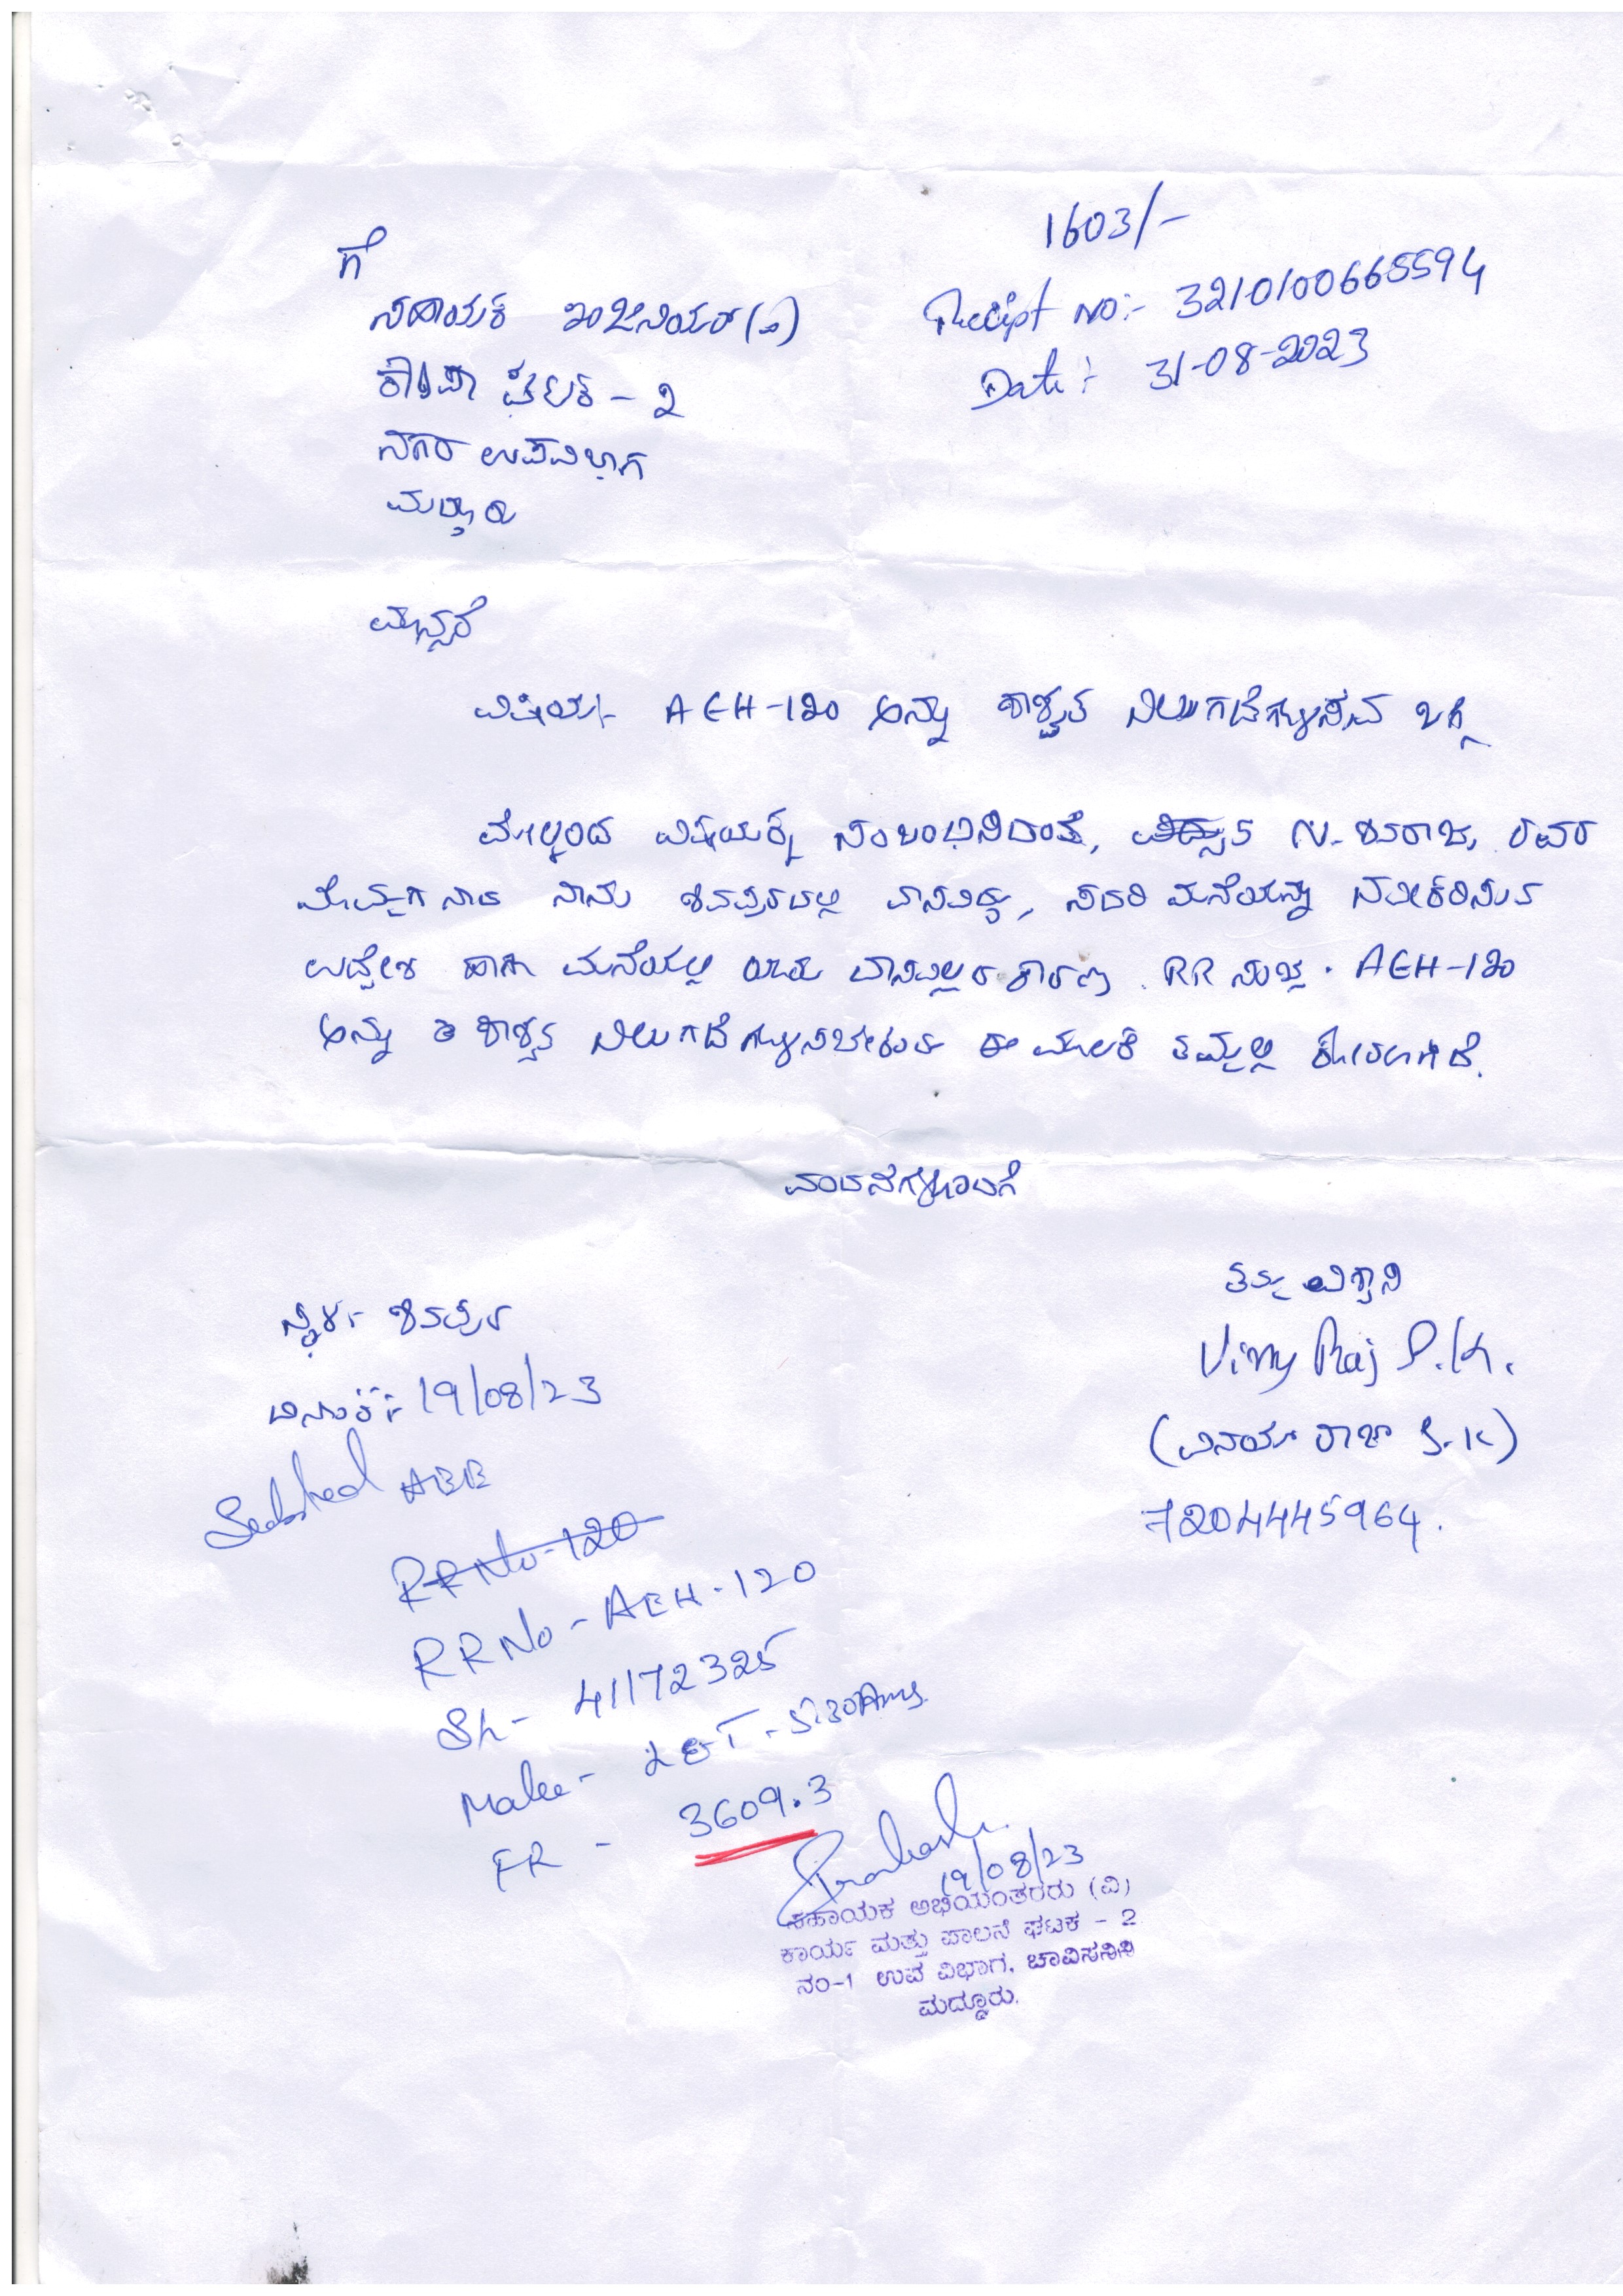 1603/-
Receipt No:- 3210100665594
Date:- 31-08-2023
ಗೆ
ಸಹಾಯಕ ಇಂಜಿನಿಯರ್ (ವಿ)
ಘಟಕ - ೨
ನಗರ ಉಪವಿಭಾಗ
ಮದ್ದೂರು
ಮಾನ್ಯರೆ
ವಿಷಯ:- AEH-120 ಅನ್ನು ಶಾಶ್ವತ ನಿಲುಗಡೆಗೊಳಿಸುವ ಬಗ್ಗೆ
ಮೇಲ್ಕಂಡ ವಿಷಯಕ್ಕೆ ಸಂಬಂಧಿಸಿದಂತೆ, N. ಶಿವರಾಜು ರವರ
ಮೊಮ್ಮಗನಾದ ನಾನು ಶಿವಪುರದಲ್ಲಿ ವಾಸವಿದ್ದು, ಸದರಿ ಮನೆಯನ್ನು ನವೀಕರಿಸುವ
ಉದ್ದೇಶ ಹಾಗೂ ಮನೆಯಲ್ಲಿ ಯಾರು ವಾಸವಿಲ್ಲದ ಕಾರಣ RR ಸಂಖ್ಯೆ. AEH-120
ಅನ್ನು ಶಾಶ್ವತ ನಿಲುಗಡೆಗೊಳಿಸಬೇಕೆಂದು ಈ ಮೂಲಕ ತಮ್ಮಲ್ಲಿ ಕೋರಲಾಗಿದೆ.
ವಂದನೆಗಳೊಂದಿಗೆ
ತಮ್ಮ ವಿಶ್ವಾಸಿ
Vinay Raj S.K.
(ವಿನಯ್ ರಾಜ್ S.K)
7204445964.
ಸ್ಥಳ:- ಶಿವಪುರ
ದಿನಾಂಕ:- 19/08/23
AEE
RR No-120
RR No - AEH-120
Sl - 41172325
Make - L&T - 5-30Amps
FR - 3609.3
19/08/23
ಸಹಾಯಕ ಅಭಿಯಂತರರು (ವಿ)
ಕಾರ್ಯ ಮತ್ತು ಪಾಲನೆ ಘಟಕ - 2
ನಂ-1 ಉಪ ವಿಭಾಗ, ಚಾವಿಸನಿನಿ
ಮದ್ದೂರು.